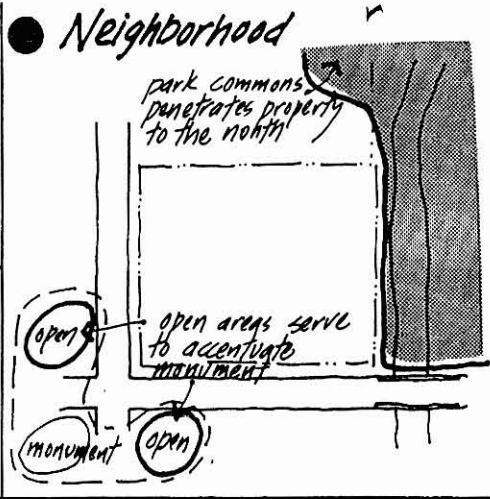 Neighborhood
park commons
penetrates property
to the north
open
open areas serve
to accentuate
monument
monument
open